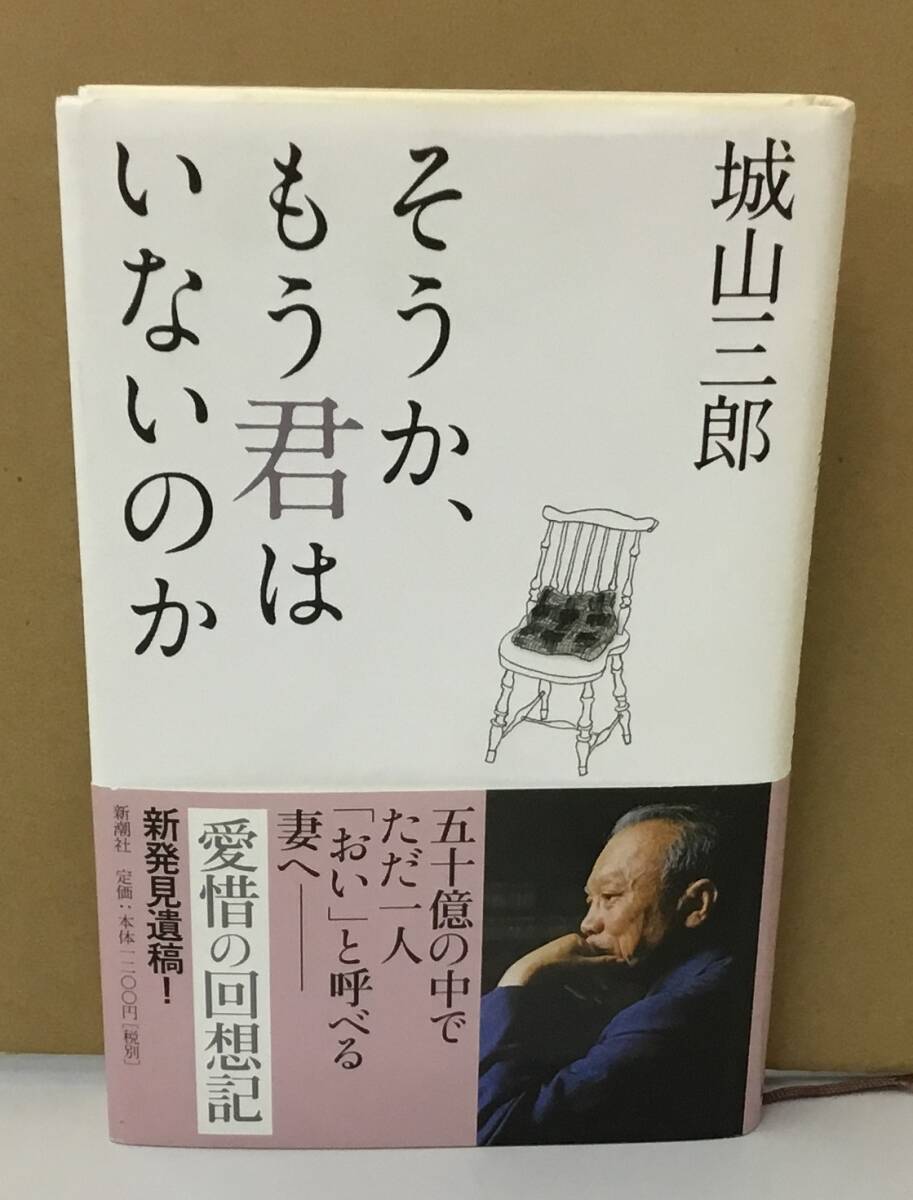 城山三郎
そうか、
もう君は
いないのか
五十億の中で
ただ一人
「おい」と呼べる
妻へ――
愛惜の回想記
新発見遺稿！
新潮社 定価：本体一二〇〇円［税別］